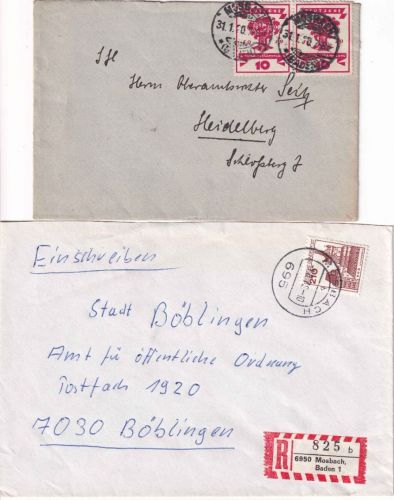 31.1.20.
10
S H
Herrn Oberamtsrichter Seitz
Heidelberg
Schloßberg 7
Einschreiben
210
695
BACH
Stadt Böblingen
Amt für öffentliche Ordnung
Postfach 1920
7030 Böblingen
R
825 b
6950 Mosbach,
Baden 1